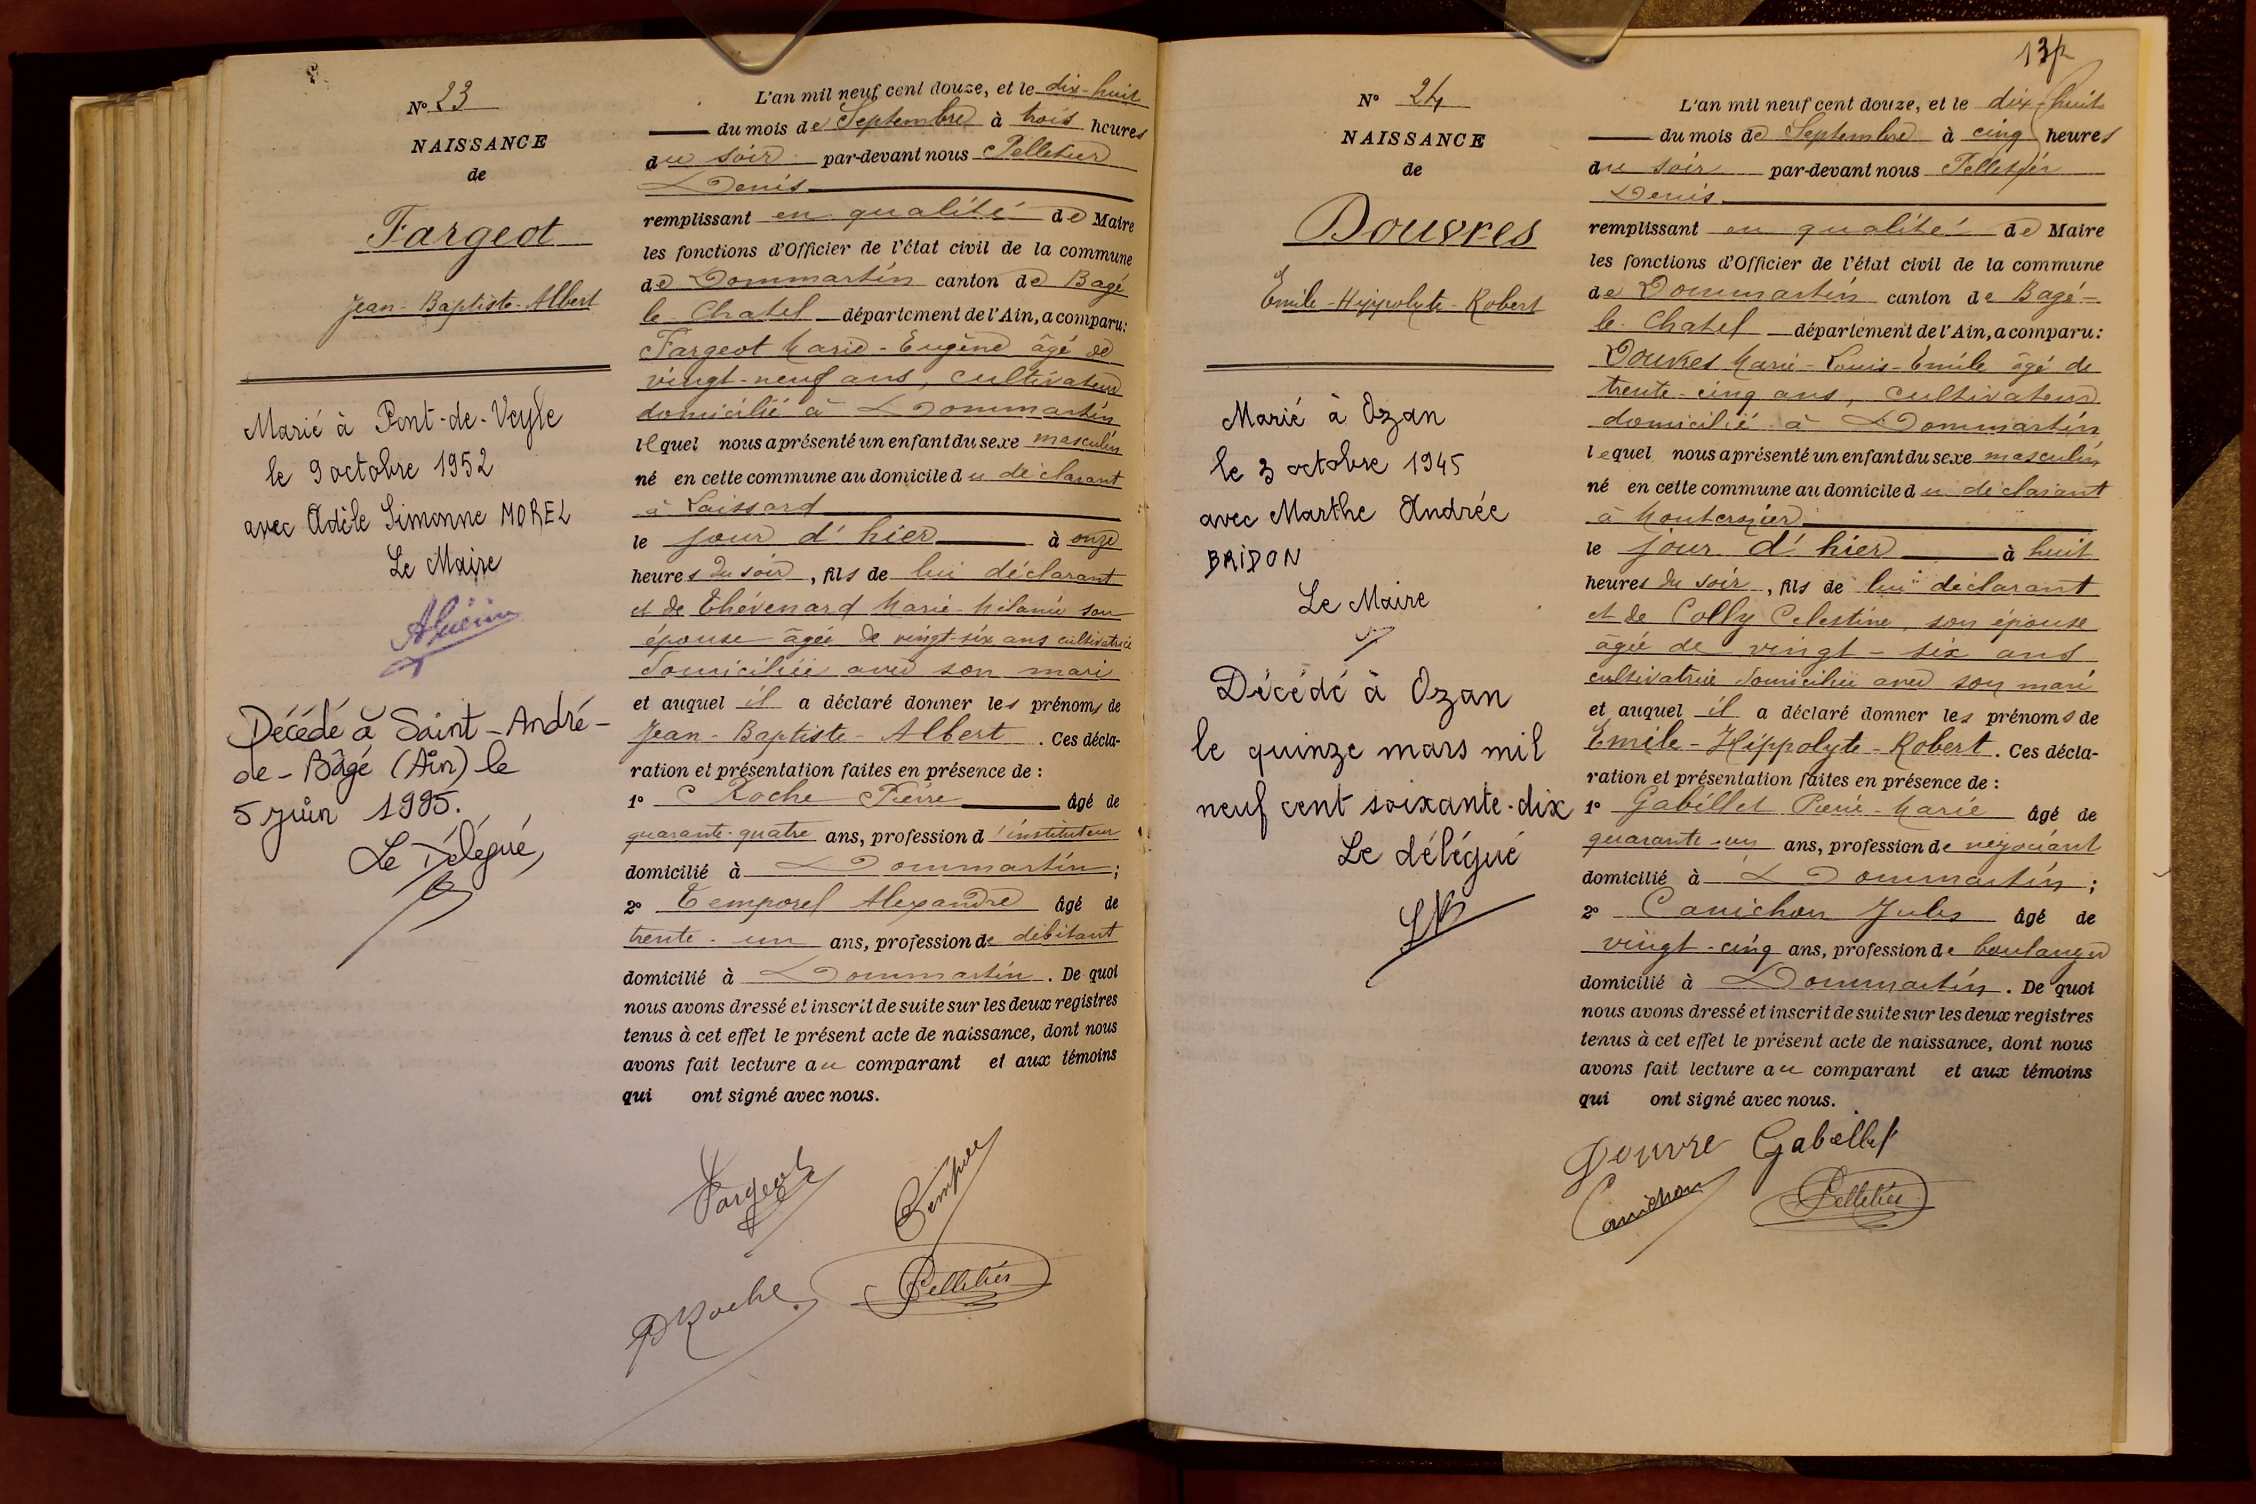 N° 23
NAISSANCE
de
Fargeot
Jean-Baptiste-Albert
Marié à Pont-de-Veyle
le 9 octobre 1952
avec Adèle Simonne MOREL
Le Maire
Décédé à Saint-André-
de-Bâgé (Ain) le
5 juin 1995.
Le Délégué,
L'an mil neuf cent douze, et le dix-huit
du mois de Septembre à trois heures
du soir par-devant nous Pelletier
Denis
remplissant en qualité de Maire
les fonctions d'Officier de l'état civil de la commune
de Dommartin canton de Bagé
le Chatel département de l'Ain, a comparu:
Fargeot Marie-Eugène âgé de
vingt-neuf ans, cultivateur
domicilié à Dommartin
lequel nous a présenté un enfant du sexe masculin
né en cette commune au domicile du déclarant
à Loissard
le jour d'hier à onze
heures du soir, fils de lui déclarant
et de Thévenard Marie-Mélanie son
épouse âgée de vingt-six ans cultivatrice
domiciliée avec son mari
et auquel il a déclaré donner les prénoms de
Jean-Baptiste-Albert. Ces décla-
ration et présentation faites en présence de :
1° Roche Pierre âgé de
quarante-quatre ans, profession d'instituteur
domicilié à Dommartin;
2° Temporel Alexandre âgé de
trente-un ans, profession de débitant
domicilié à Dommartin. De quoi
nous avons dressé et inscrit de suite sur les deux registres
tenus à cet effet le présent acte de naissance, dont nous
avons fait lecture au comparant et aux témoins
qui ont signé avec nous.
Fargeot
PRoche
Pelletier
13
N° 24
NAISSANCE
de
Douvres
Emile-Hippolyte-Robert
Marié à Ozan
le 3 octobre 1945
avec Marthe Andrée
BRIDON
Le Maire
Décédé à Ozan
le quinze mars mil
neuf cent soixante-dix
Le délégué
L'an mil neuf cent douze, et le dix-huit
du mois de Septembre à cinq heures
du soir par-devant nous Pelletier
Denis
remplissant en qualité de Maire
les fonctions d'Officier de l'état civil de la commune
de Dommartin canton de Bagé-
le Chatel département de l'Ain, a comparu:
Douvres Marie-Louis-Emile âgé de
trente-cinq ans, cultivateur
domicilié à Dommartin
lequel nous a présenté un enfant du sexe masculin
né en cette commune au domicile du déclarant
à Montcrozier
le jour d'hier à huit
heures du soir, fils de lui déclarant
et de Colly Celestine, son épouse
âgée de vingt-six ans
cultivatrice domiciliée avec son mari
et auquel il a déclaré donner les prénoms de
Emile-Hippolyte-Robert. Ces décla-
ration et présentation faites en présence de :
1° Gabillet Pierre-Marie âgé de
quarante-un ans, profession de négociant
domicilié à Dommartin;
2° Canichon Jules âgé de
vingt-cinq ans, profession de boulanger
domicilié à Dommartin. De quoi
nous avons dressé et inscrit de suite sur les deux registres
tenus à cet effet le présent acte de naissance, dont nous
avons fait lecture au comparant et aux témoins
qui ont signé avec nous.
Douvre Gabillet
Canichon Pelletier